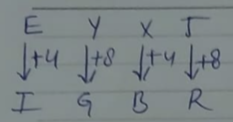 E Y X J
↓+4 ↓+8 ↓+4 ↓+8
I G B R